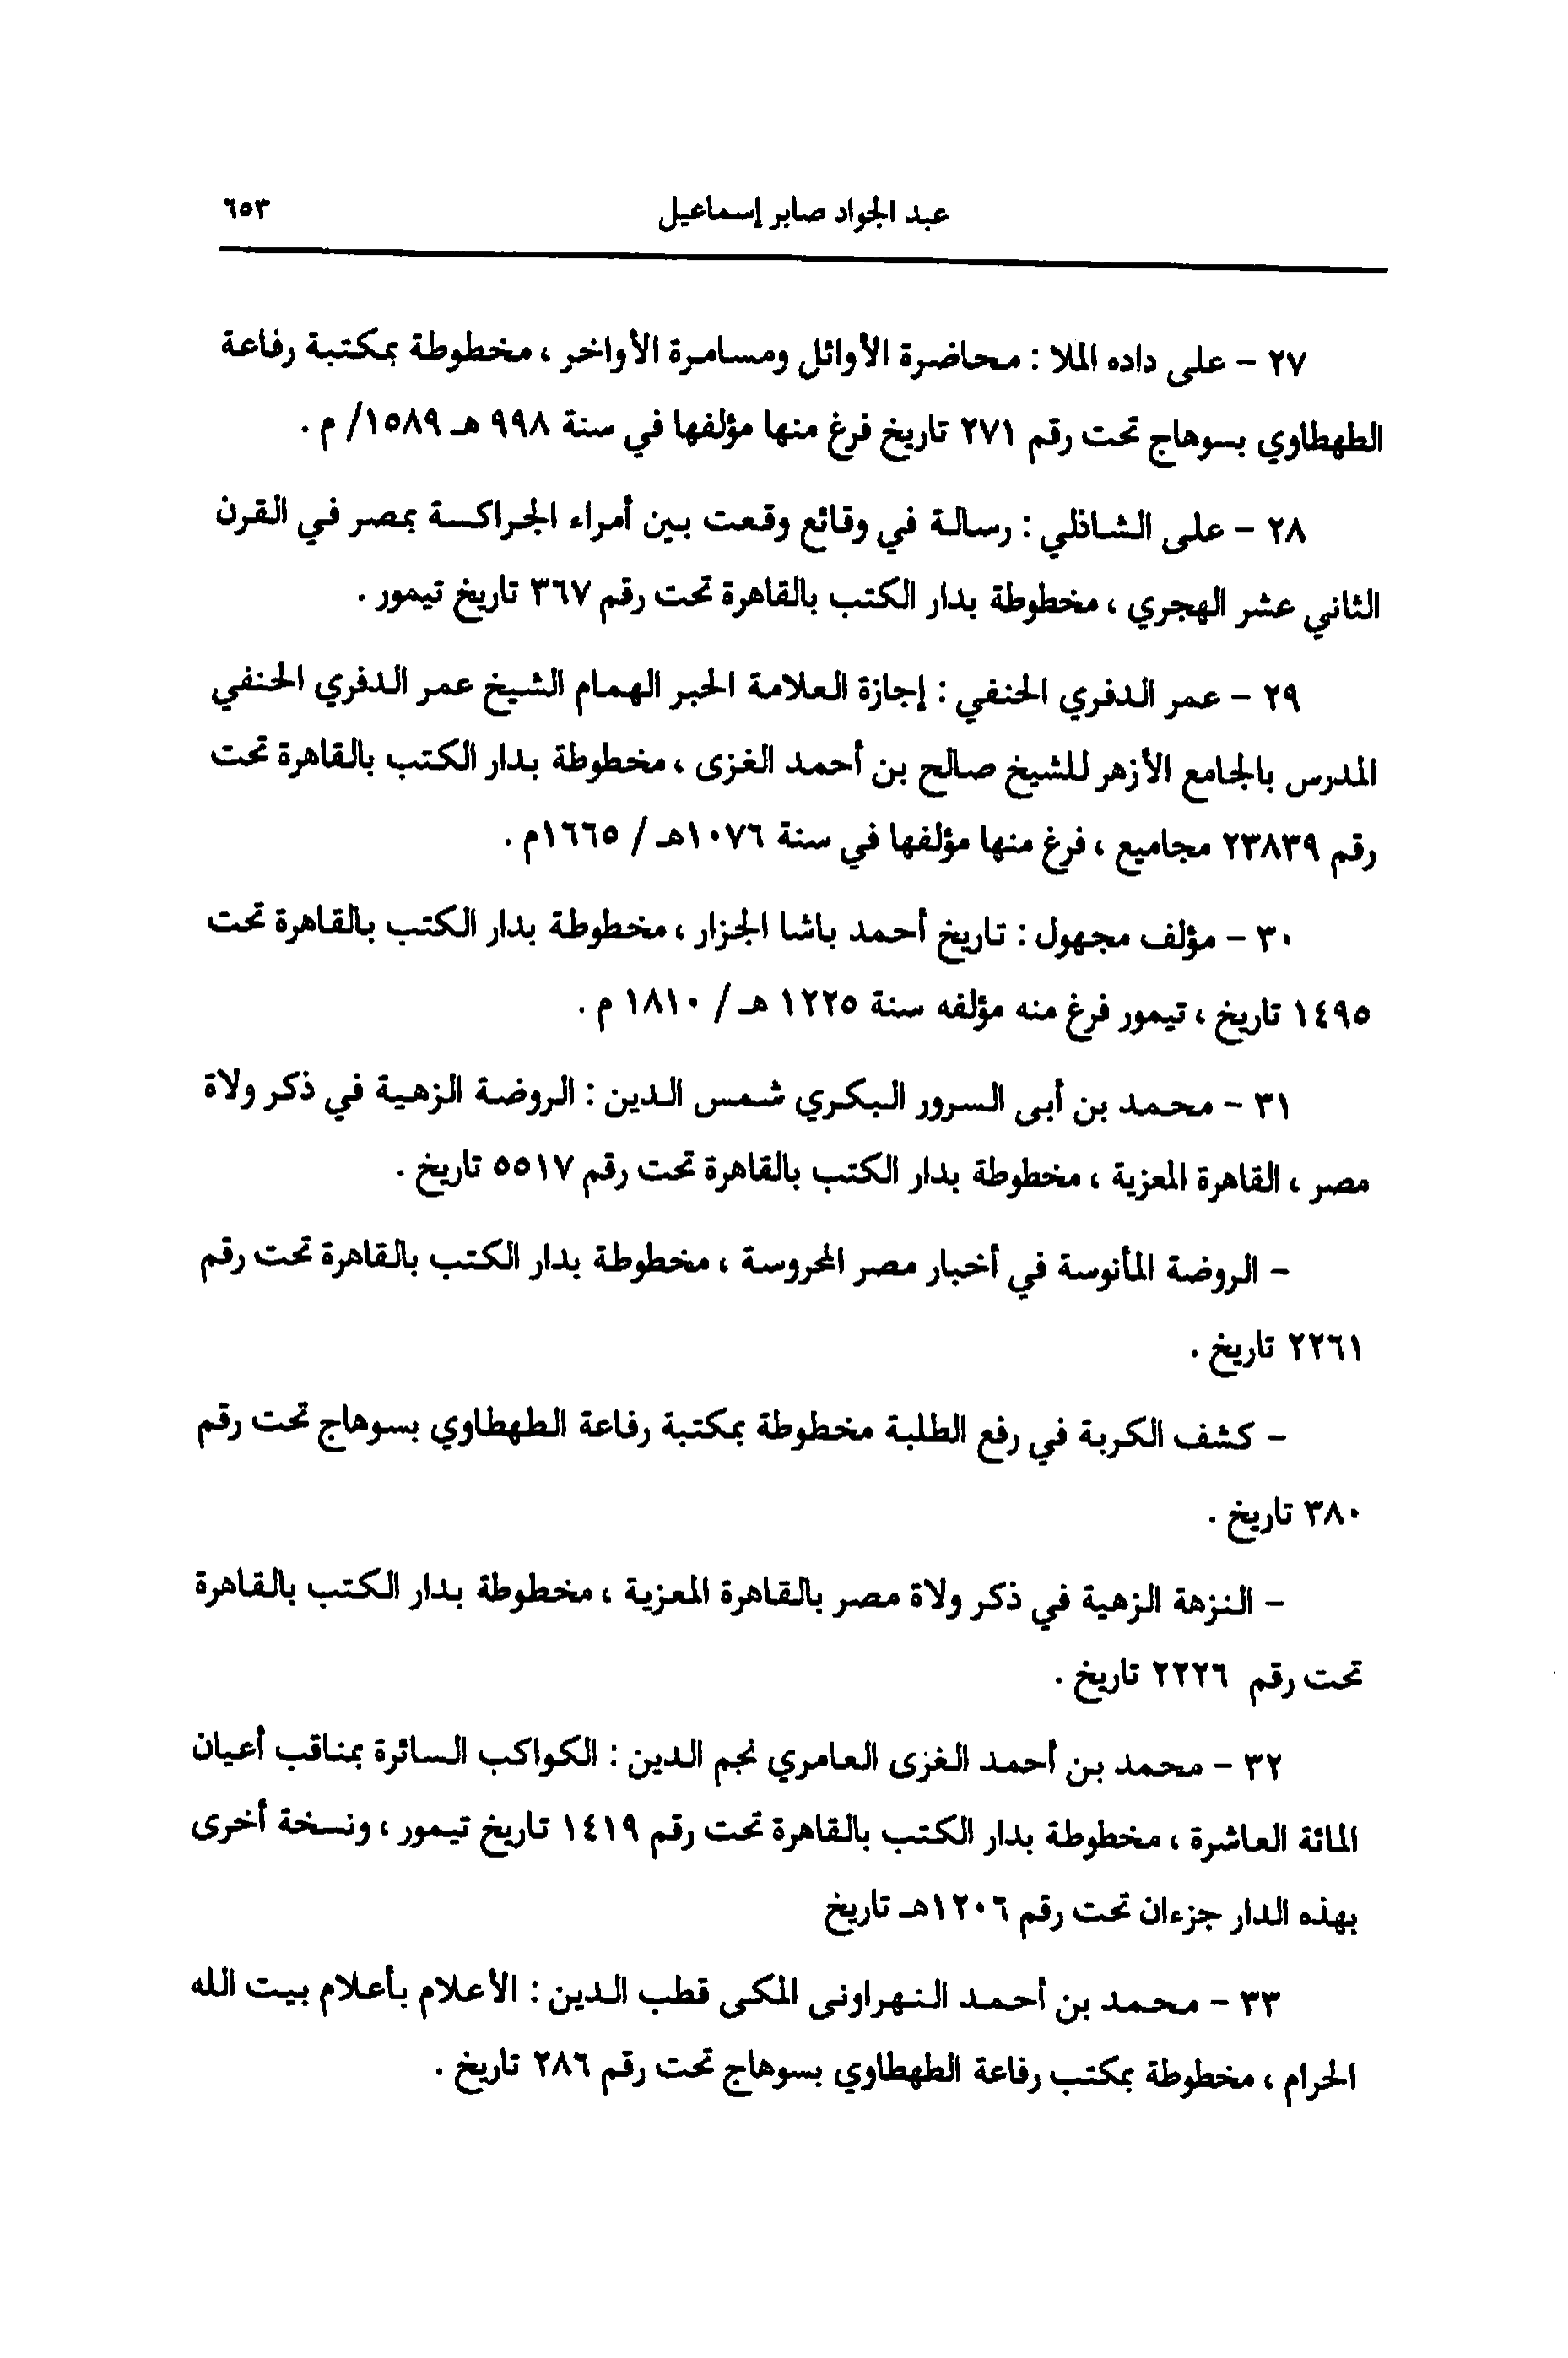 عبد الجواد صابر إسماعيل ٦٥٣
٢٧ - على داده الملا : محاضرة الأوائل ومسامرة الأواخر ، مخطوطة بمكتبة رفاعة
الطهطاوي بسوهاج تحت رقم ٢٧١ تاريخ فرغ منها مؤلفها في سنة ٩٩٨ هـ ١٥٨٩/ م .
٢٨ - على الشاذلي : رسالة في وقائع وقعت بين أمراء الجراكسة بمصر في القرن
الثاني عشر الهجري ، مخطوطة بدار الكتب بالقاهرة تحت رقم ٣٦٧ تاريخ تيمور .
٢٩ - عمر الدفري الحنفي : إجازة العلامة الحبر الهمام الشيخ عمر الدفري الحنفي
المدرس بالجامع الأزهر للشيخ صالح بن أحمد الغزى ، مخطوطة بدار الكتب بالقاهرة تحت
رقم ٢٣٨٣٩ مجاميع ، فرغ منها مؤلفها في سنة ١٠٧٦هـ / ١٦٦٥م .
٣٠ - مؤلف مجهول : تاريخ أحمد باشا الجزار ، مخطوطة بدار الكتب بالقاهرة تحت
١٤٩٥ تاريخ ، تيمور فرغ منه مؤلفه سنة ١٢٢٥ هـ / ١٨١٠ م .
٣١ - محمد بن أبى السرور البكري شمس الدين : الروضة الزهية في ذكر ولاة
مصر ، القاهرة المعزية ، مخطوطة بدار الكتب بالقاهرة تحت رقم ٥٥١٧ تاريخ .
- الروضة المأنوسة في أخبار مصر المحروسة ، مخطوطة بدار الكتب بالقاهرة تحت رقم
٢٢٦١ تاريخ .
- كشف الكربة في رفع الطلبة مخطوطة بمكتبة رفاعة الطهطاوي بسوهاج تحت رقم
٣٨٠ تاريخ .
- النزهة الزهية في ذكر ولاة مصر بالقاهرة المعزية ، مخطوطة بدار الكتب بالقاهرة
تحت رقم ٢٢٢٦ تاريخ .
٣٢ - محمد بن أحمد الغزى العامري نجم الدين : الكواكب السائرة بمناقب أعيان
المائة العاشرة ، مخطوطة بدار الكتب بالقاهرة تحت رقم ١٤١٩ تاريخ تيمور ، ونسخة أخرى
بهذه الدار جزءان تحت رقم ١٢٠٦هـ تاريخ
٣٣ - محمد بن أحمد النهراونى المكى قطب الدين : الأعلام بأعلام بيت الله
الحرام ، مخطوطة بمكتب رفاعة الطهطاوي بسوهاج تحت رقم ٢٨٦ تاريخ .